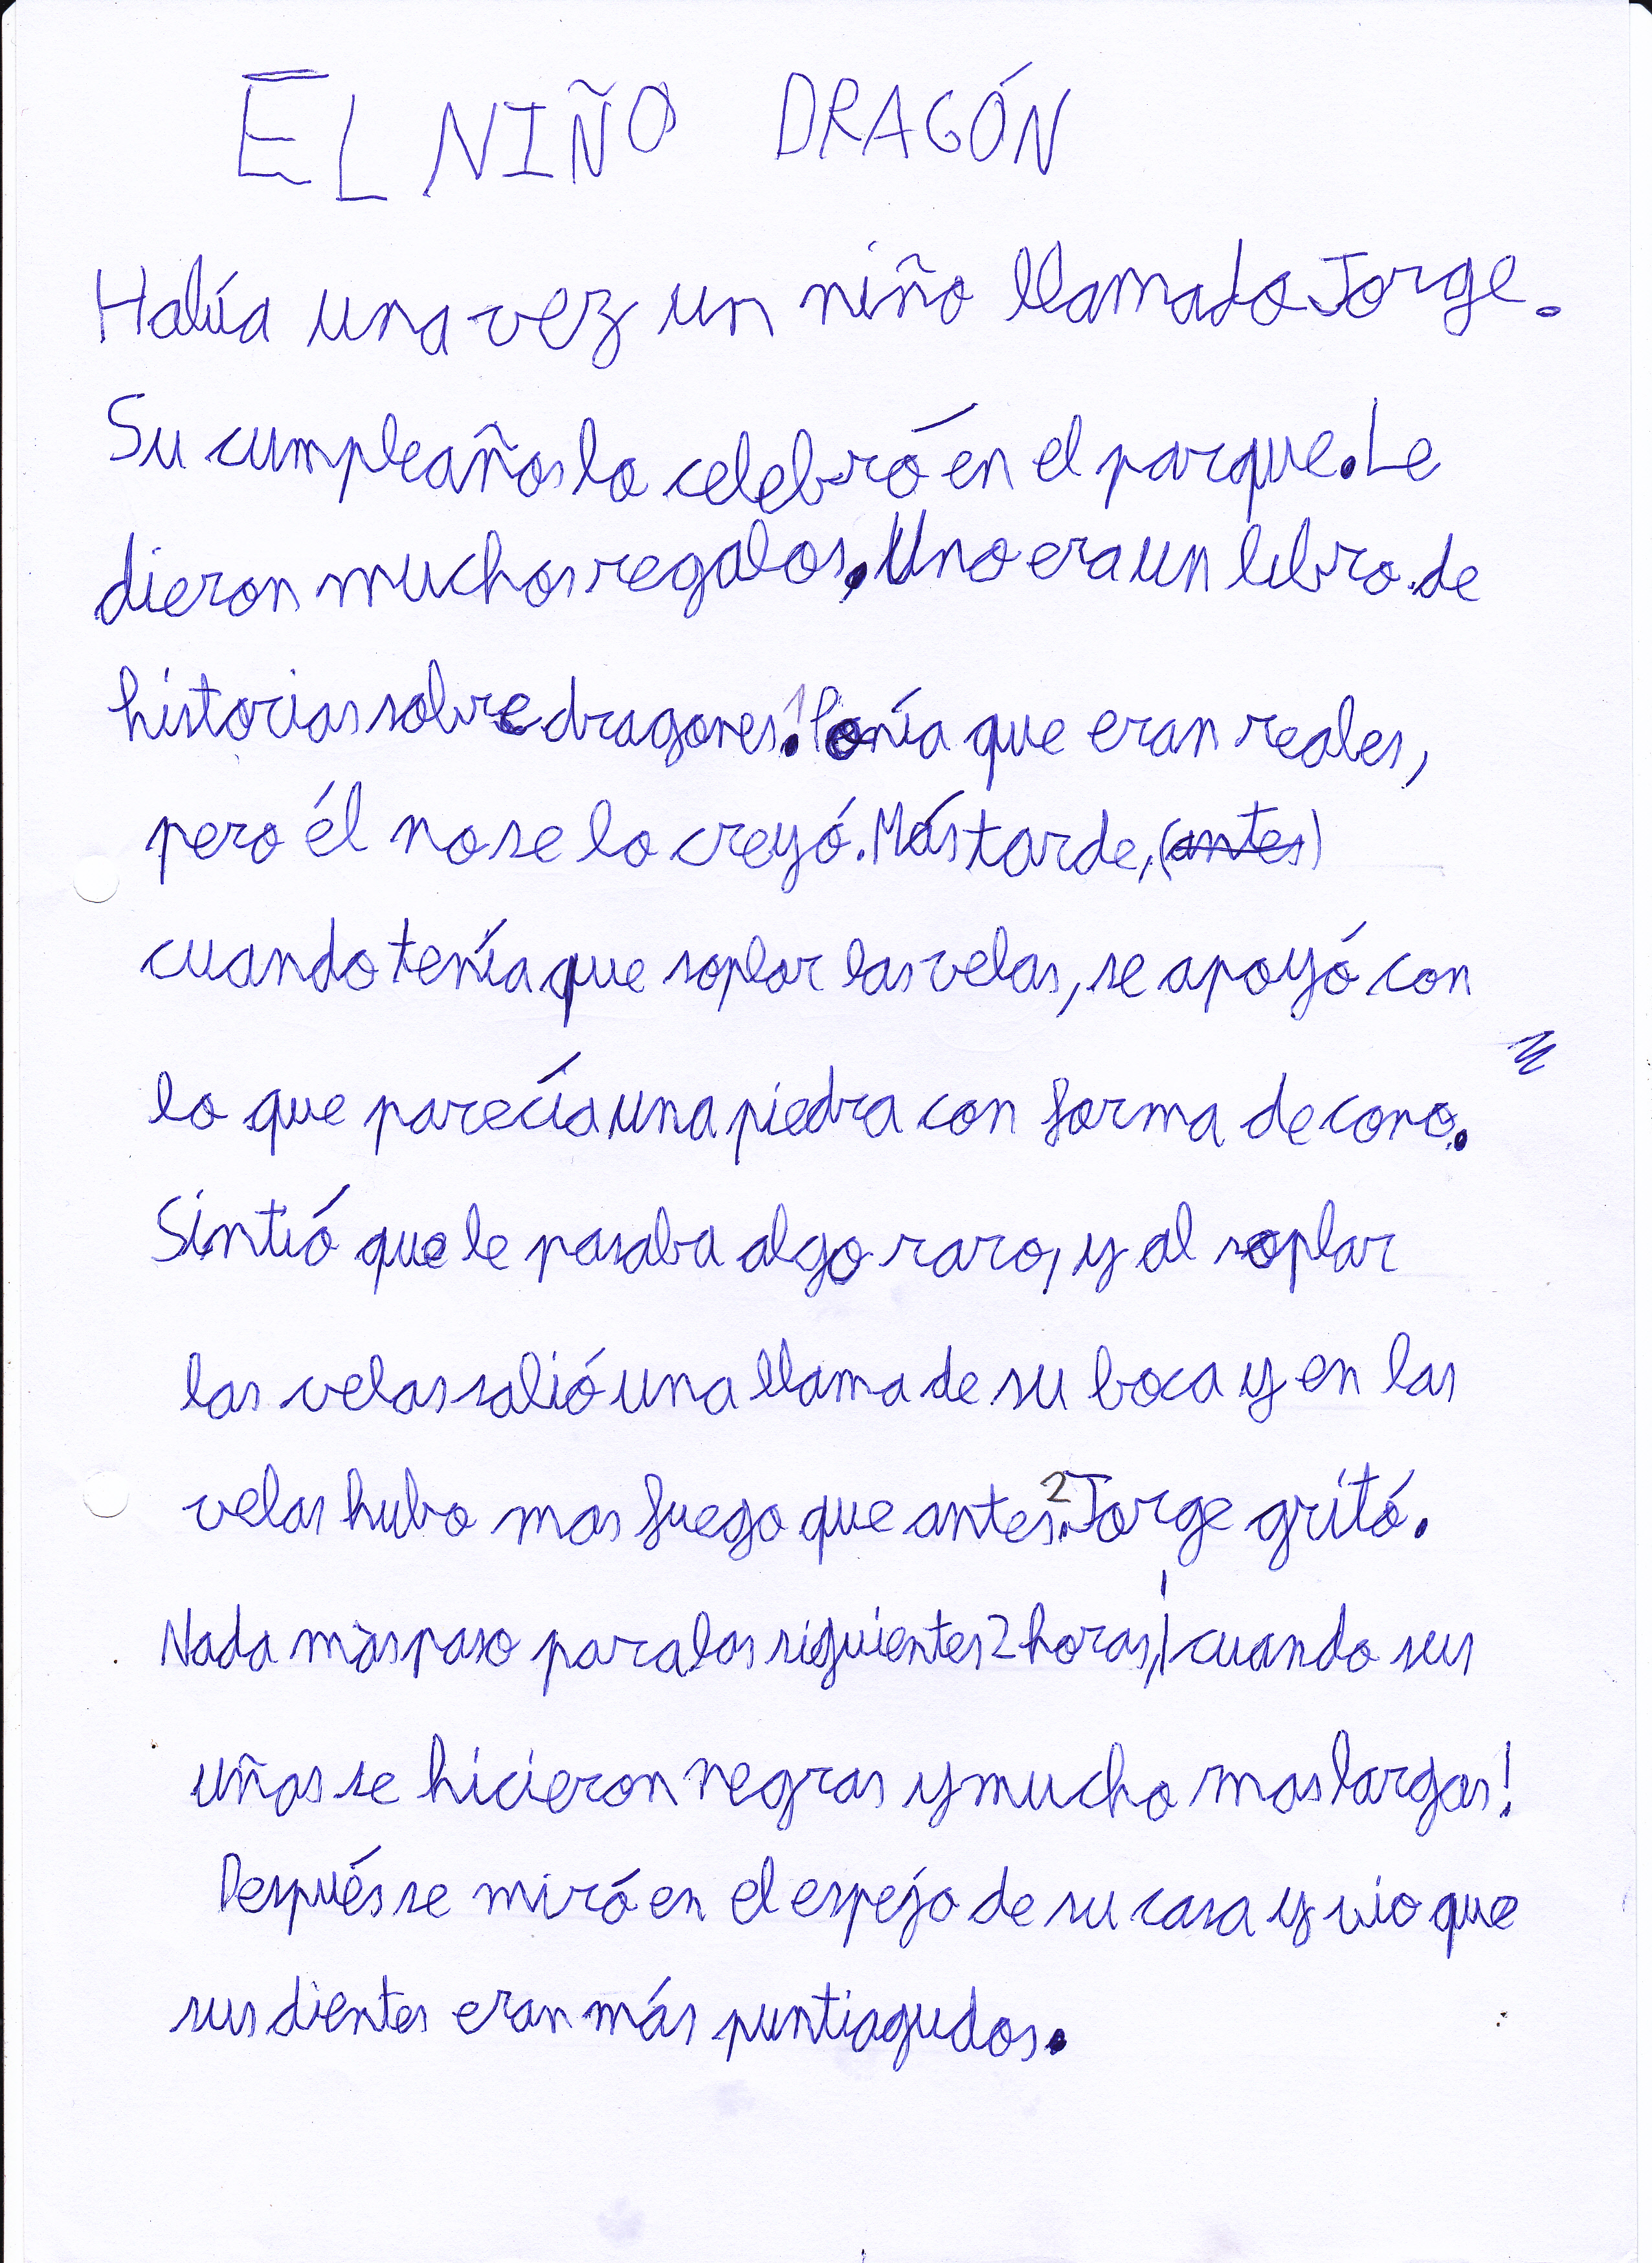 EL NIÑO DRAGÓN
Había una vez un niño llamado Jorge.
Su cumpleaños lo celebró en el parque. Le
dieron muchos regalos. Uno era un libro de
historias sobre dragones.¹ Ponía que eran reales,
pero él no se lo creyó. Más tarde, (antes)
cuando tenía que soplar las velas, se apoyó con
lo que parecía una piedra con forma de cono.
Sintió que le pasaba algo raro, y al soplar
las velas salió una llama de su boca y en las
velas hubo mas fuego que antes.² Jorge gritó.
Nada más paso para las siguientes 2 horas, ¡cuando sus
uñas se hicieron negras y mucho mas largas!
Después se miró en el espejo de su casa y vio que
sus dientes eran más puntiagudos.